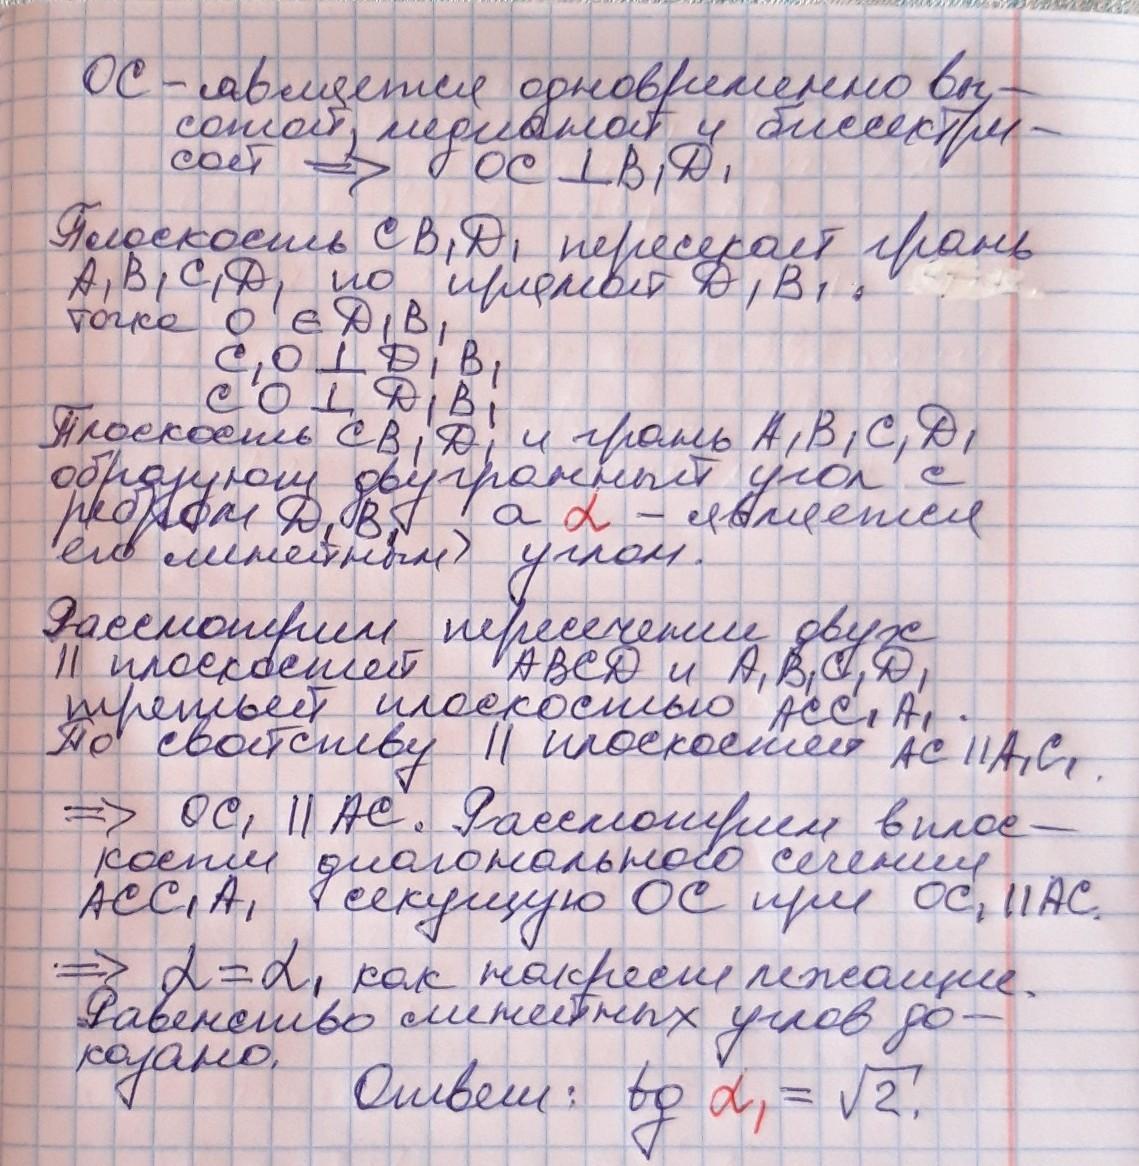 ОС – является одновременно вы-
сотой, медианой и биссектри-
сой => ОС ⊥ B₁D₁
Плоскость CB₁D₁ пересекает грань
A₁B₁C₁D₁ по прямой D₁B₁.
точка O ∈ D₁B₁
C₁O ⊥ D₁B₁
CO ⊥ D₁B₁
Плоскость CB₁D₁ и грань A₁B₁C₁D₁
образуют двугранный угол с
ребром D₁B₁ а α – является
его линейным углом.
Рассмотрим пересечение двух
|| плоскостей ABCD и A₁B₁C₁D₁
третьей плоскостью ACC₁A₁.
По свойству || плоскостей AC || A₁C₁.
=> OC₁ || AC. Рассмотрим в плос-
кости диагонального сечения
ACC₁A₁ секущую OC при OC₁ || AC.
=> α = α₁ как накрест лежащие.
Равенство линейных углов до-
казано.
Ответ: tg α₁ = √2.